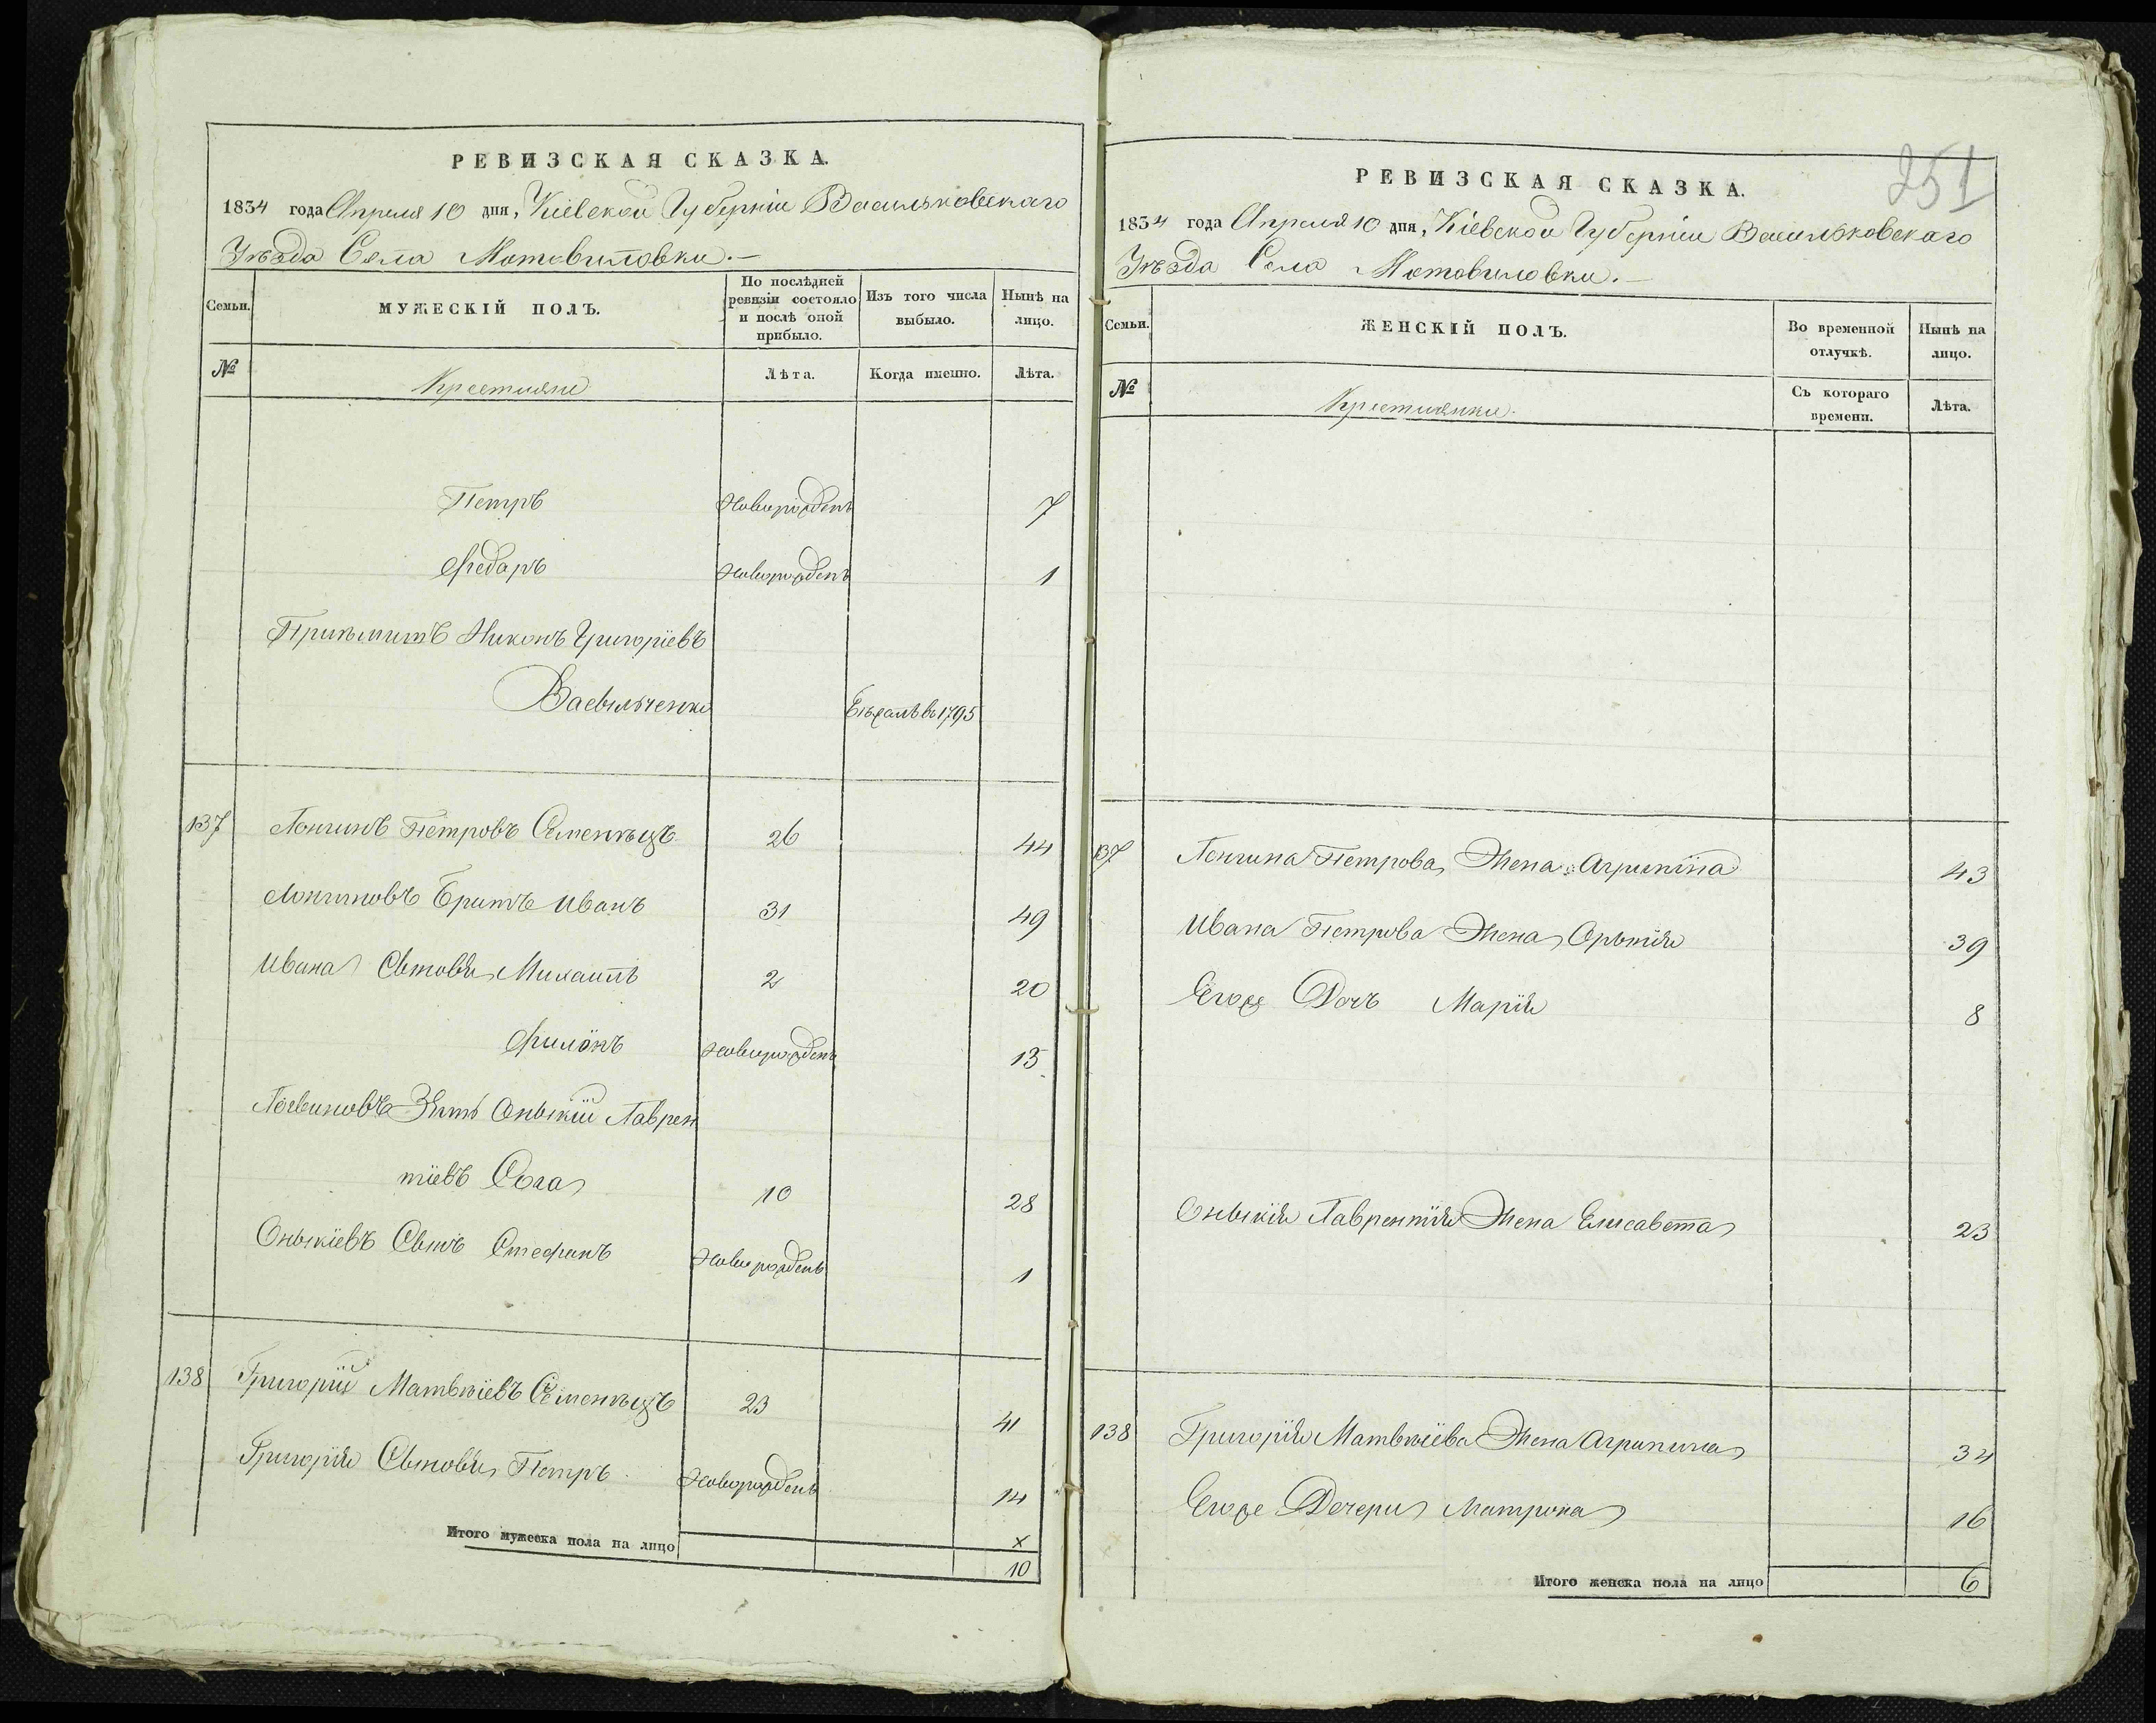 РЕВИЗСКАЯ СКАЗКА.
1834 года Апреля 10 дня, Кіевской Губерніи Васильковскаго
Уѣзда Села Мотовиловки.–
Семьи.
МУЖЕСКІЙ ПОЛЪ.
По послѣдней ревизіи состояло и послѣ оной прибыло.
Изъ того числа выбыло.
Нынѣ на лицо.
№
Крестияне
Лѣта.
Когда именно.
Лѣта.
Петръ Новорожденъ 7
Федаръ Новорожденъ 1
Никонъ Григоріевъ
Васильченко въ 1795
137 Лонгинъ Петровъ Семенѣцъ 26 44
Лонгиновъ Братъ Иванъ 31 49
Ивана Сыновья Михаилъ 2 20
Филонъ Новорожденъ 15
Зять Оныкій Лаврен
тіевъ 10 28
Оныкіевъ Сынъ Стефанъ Новорожденъ 1
138 Григорій Матвѣіевъ Семенѣцъ 23 41
Григорія Сыновья Петръ Новорожденъ 14
Итого мужеска пола на лицо
х
10
251
РЕВИЗСКАЯ СКАЗКА.
1834 года Апреля 10 дня, Кіевской Губерніи Васильковскаго
Уѣзда Села Мотовиловки.–
Семьи.
ЖЕНСКІЙ ПОЛЪ.
Во временной отлучкѣ.
Нынѣ на лицо.
№
Крестиянки.
Съ котораго времени.
Лѣта.
137 Лонгина Петрова Жена Агрипина 43
Ивана Петрова Жена 39
Егоже Дочъ Марія 8
Оныкія Лаврентія Жена Елисавета 23
138 Григорія Матвѣіева Жена Агрипина 34
Егоже Дочери Матрона 16
Итого женска пола на лицо 6